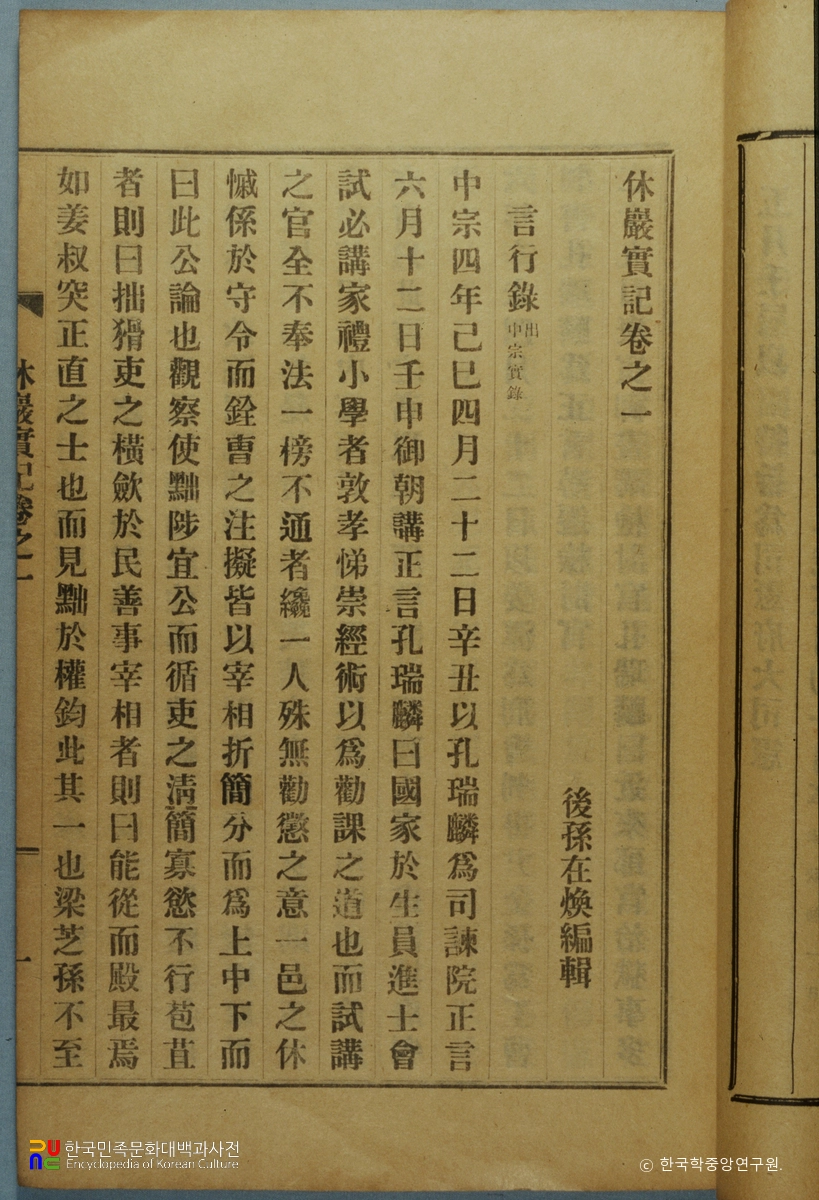 休巖實記卷之一
後孫在煥編輯
言行錄 出中宗實錄
中宗四年己巳四月二十二日辛丑以孔瑞麟爲司諫院正言
六月十二日壬申御朝講正言孔瑞麟曰國家於生員進士會
試必講家禮小學者敦孝悌崇經術以爲勸課之道也而試講
之官全不奉法一榜不通者纔一人殊無勸懲之意一邑之休
慽係於守令而銓曹之注擬皆以宰相折簡分而爲上中下而
曰此公論也觀察使黜陟宜公而循吏之淸簡寡慾不行苞苴
者則曰拙猾吏之橫斂於民善事宰相者則曰能從而殿最焉
如姜叔突正直之士也而見黜於權鈞此其一也梁芝孫不至
休巖實記卷之一
一
한국민족문화대백과사전
Encyclopedia of Korean Culture
© 한국학중앙연구원.